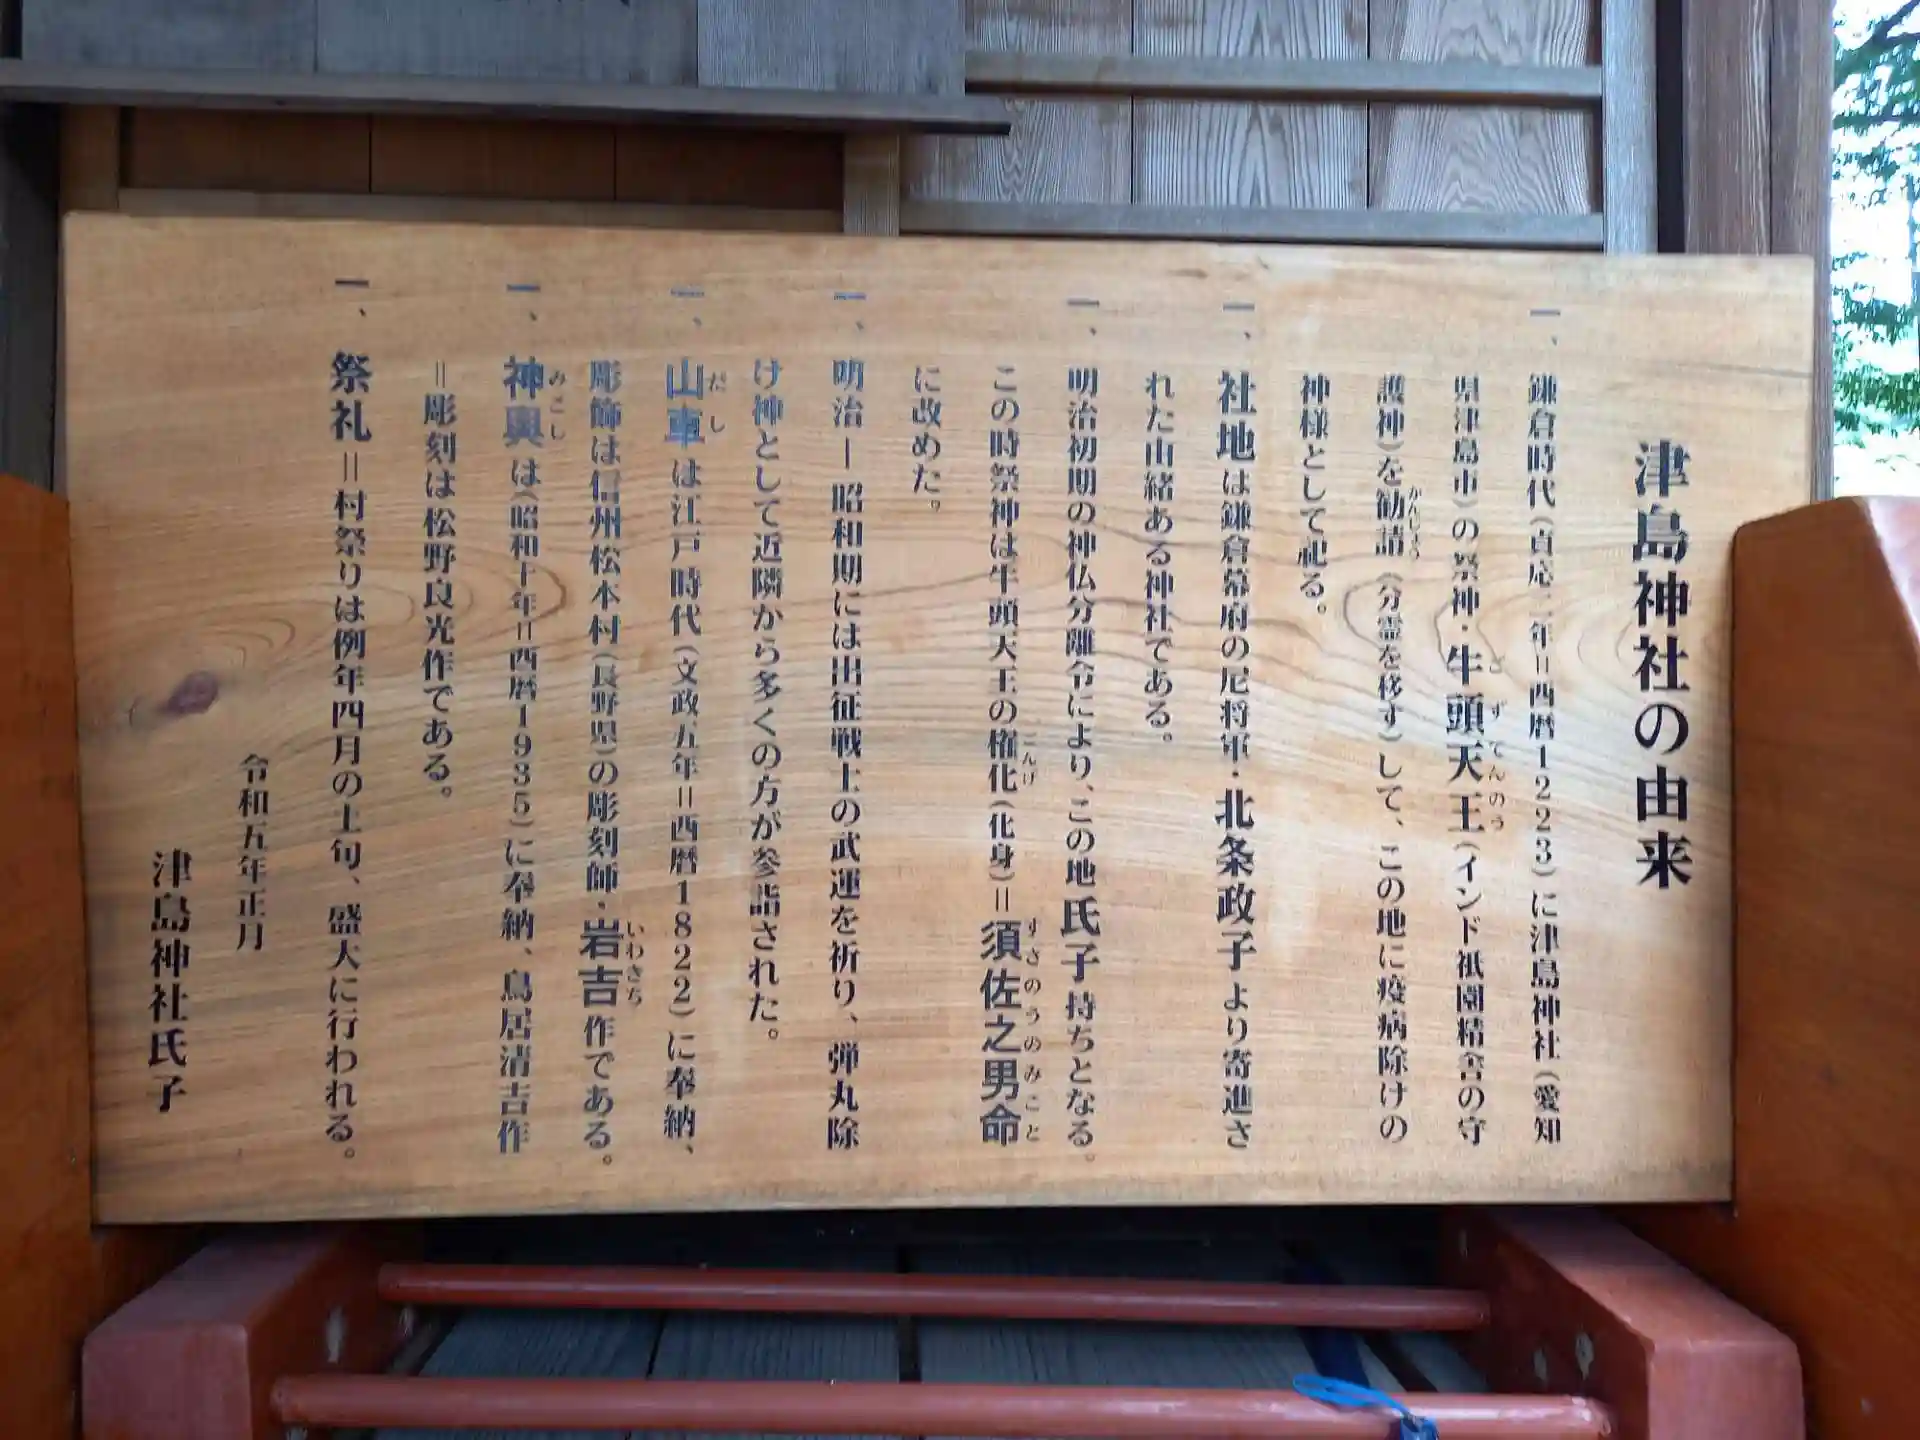 津島神社の由来
一、鎌倉時代（貞応二年＝西暦1223）に津島神社（愛知
県津島市）の祭神・牛頭天王（インド祇園精舎の守
護神）を勧請（分霊を移す）して、この地に疫病除けの
神様として祀る。
一、社地は鎌倉幕府の尼将軍・北条政子より寄進さ
れた由緒ある神社である。
一、明治初期の神仏分離令により、この地氏子持ちとなる。
この時祭神は牛頭天王の権化（化身）＝須佐之男命
に改めた。
一、明治ー昭和期には出征戦士の武運を祈り、弾丸除
け神として近隣から多くの方が参詣された。
一、山車は江戸時代（文政五年＝西暦1822）に奉納、
彫飾は信州松本村（長野県）の彫刻師・岩吉作である。
一、神輿は（昭和十年＝西暦1935）に奉納、鳥居清吉作
＝彫刻は松野良光作である。
一、祭礼＝村祭りは例年四月の上旬、盛大に行われる。
令和五年正月
津島神社氏子